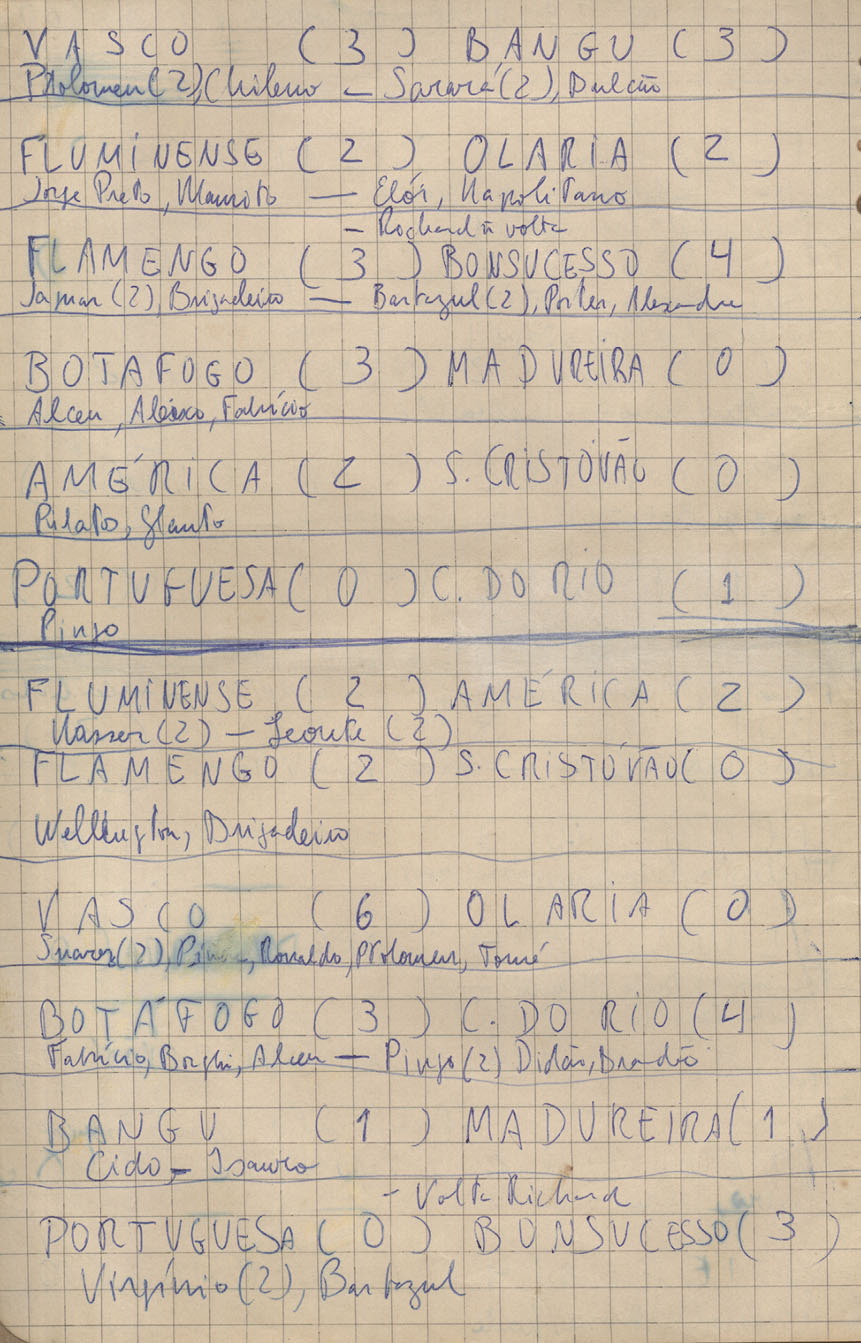 VASCO (3) BANGU (3)
Ptolomeu(2), Chileno — Sarará(2), Dulcão
FLUMINENSE (2) OLARIA (2)
Jorge Preto, Maurito — Elói, Napolitano
- Richard à volta
FLAMENGO (3) BONSUCESSO (4)
Jamar(2), Brigadeiro — Bartazul(2), Porter, Alexandre
BOTAFOGO (3) MADUREIRA (0)
Alceu, Aleixo, Fabrício
AMÉRICA (2) S. CRISTOVÃO (0)
Pilato, Glauto
PORTUGUESA (0) C. DO RIO (1)
Pingo
FLUMINENSE (2) AMÉRICA (2)
Nasser(2) — (2)
FLAMENGO (2) S. CRISTÓVÃO (0)
Wellington, Brigadeiro
VASCO (6) OLARIA (0)
Suarez(2), Ronaldo, Ptolomeu, Tomé
BOTAFOGO (3) C. DO RIO (4)
Fabrício, Borghi, Alceu — Pingo(2) Didão, Brandão
BANGU (1) MADUREIRA (1)
Cido — Isauro
- Volta Richard
PORTUGUESA (0) BONSUCESSO (3)
Virgínio(2), Bartazul